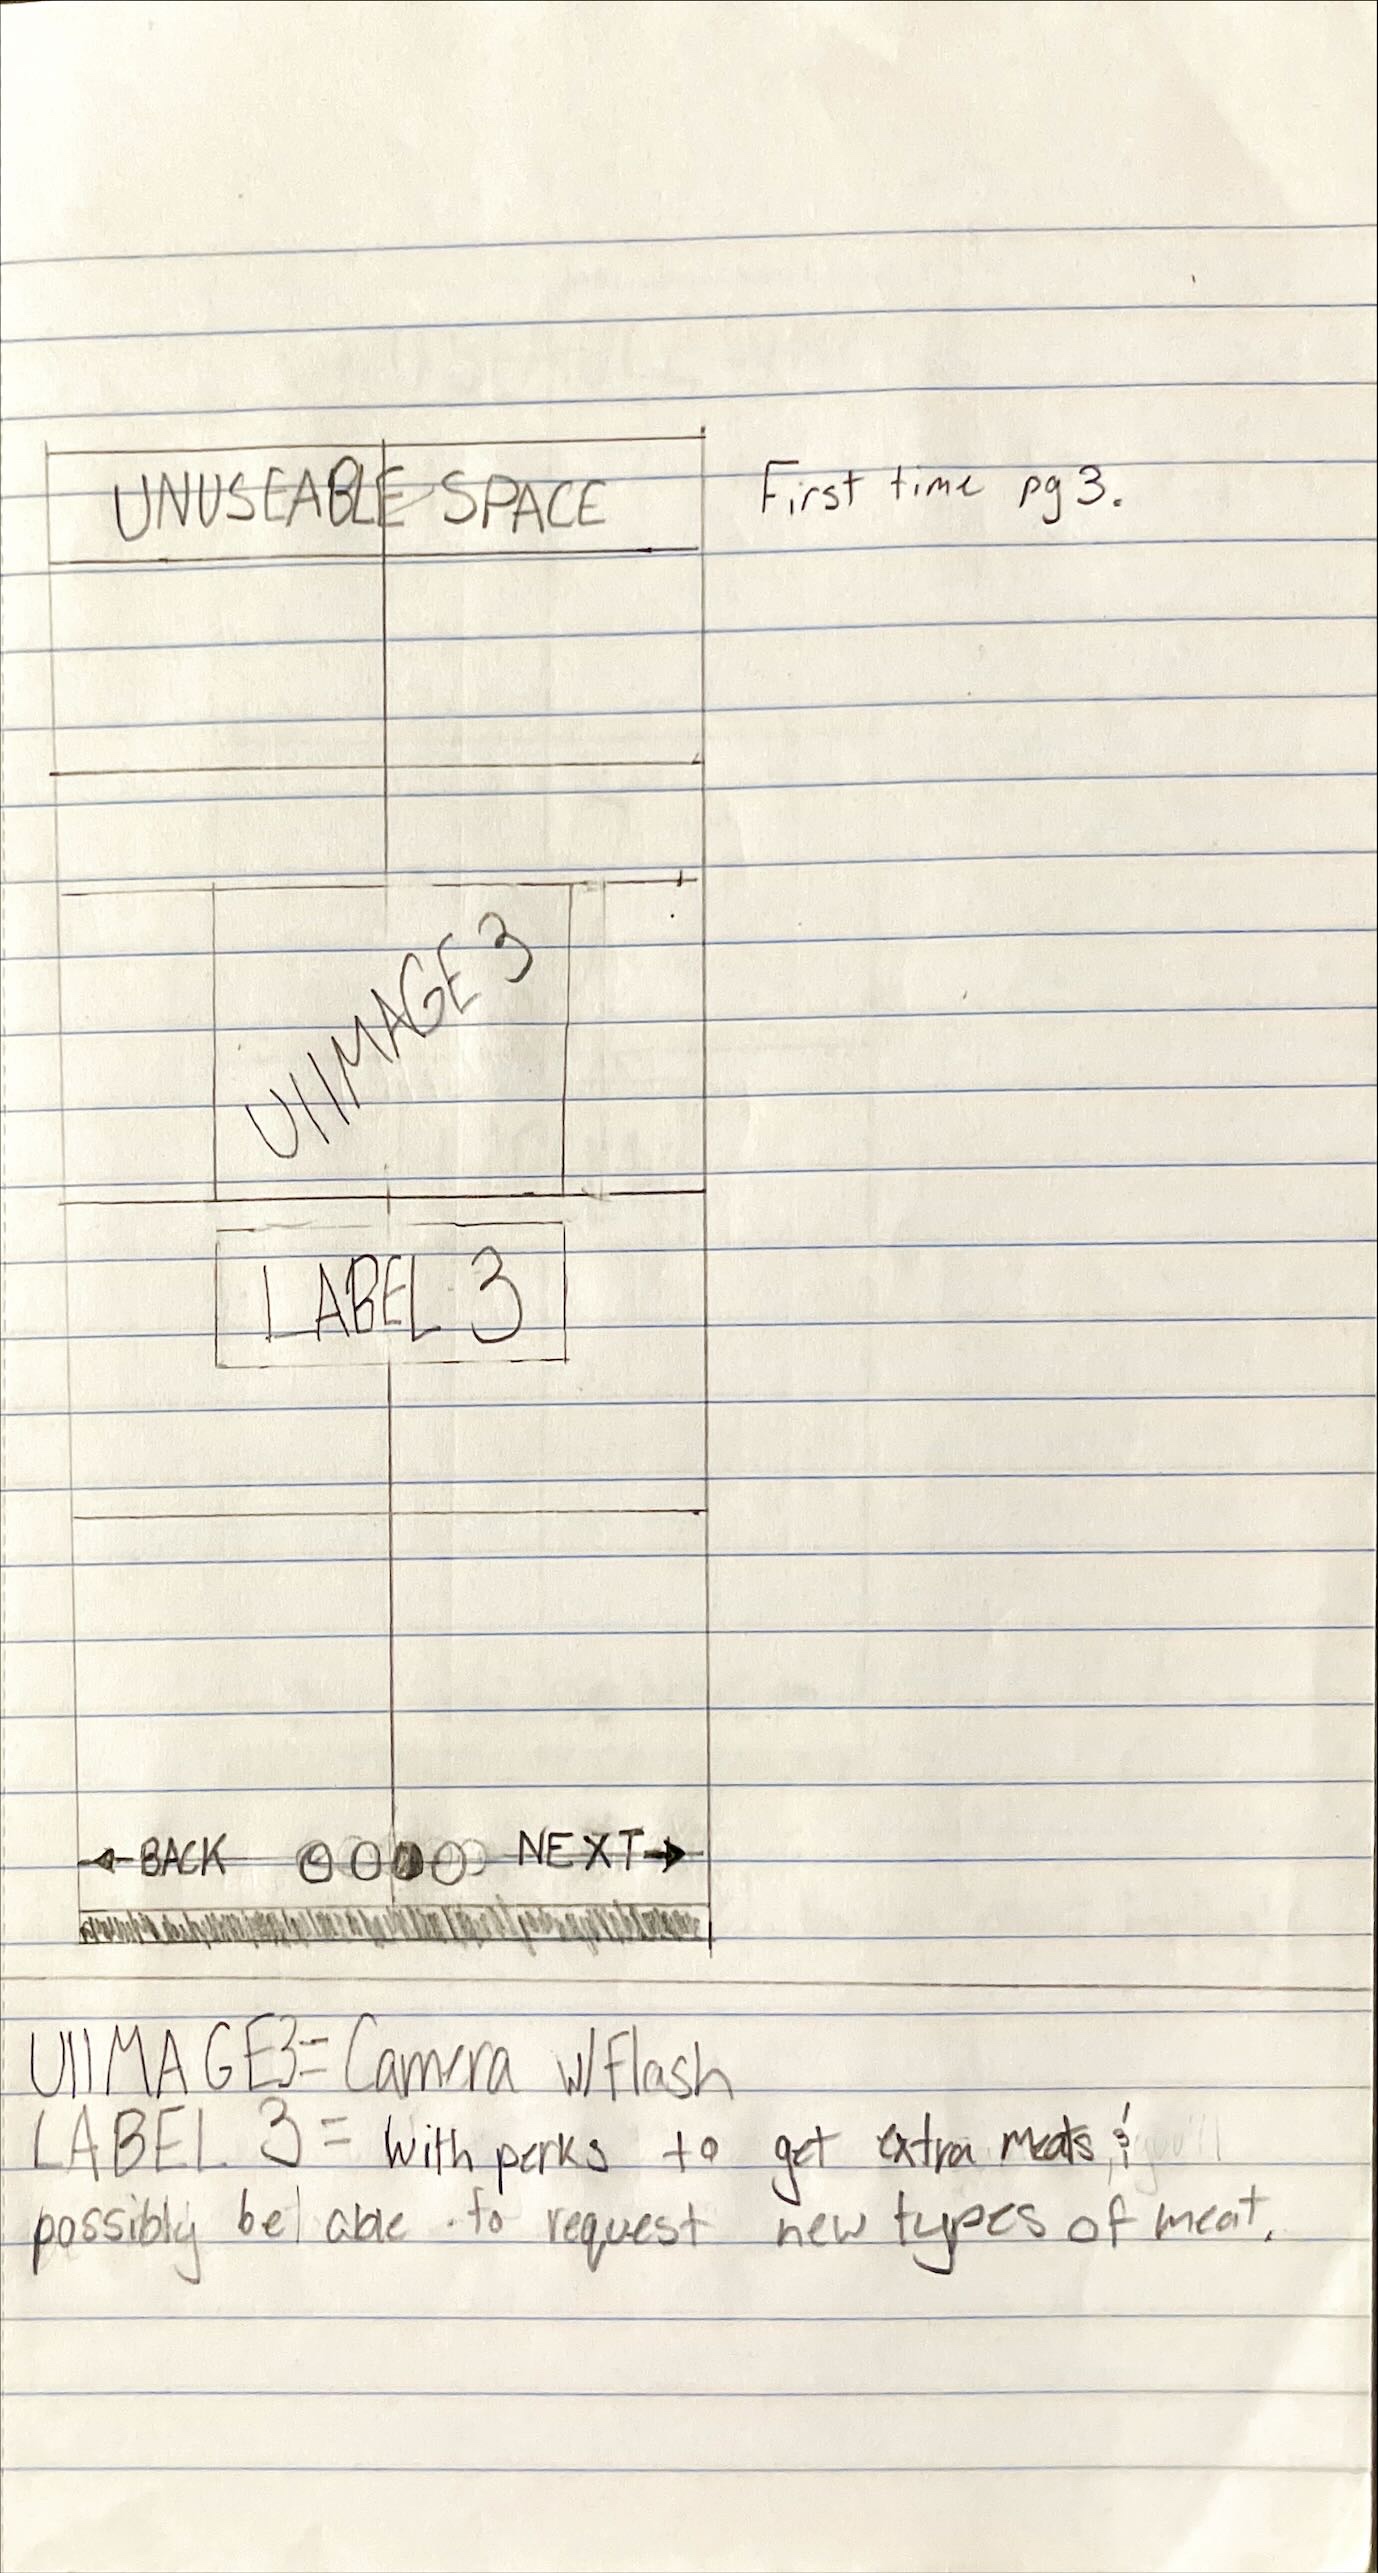 UNUSEABLE SPACE
First time pg 3.
UIIMAGE 3
LABEL 3
←BACK
NEXT→
UIIMAGE3= Camera w/Flash
LABEL 3 = With perks to get extra meats, & you'll
possibly be able to request new types of meat.